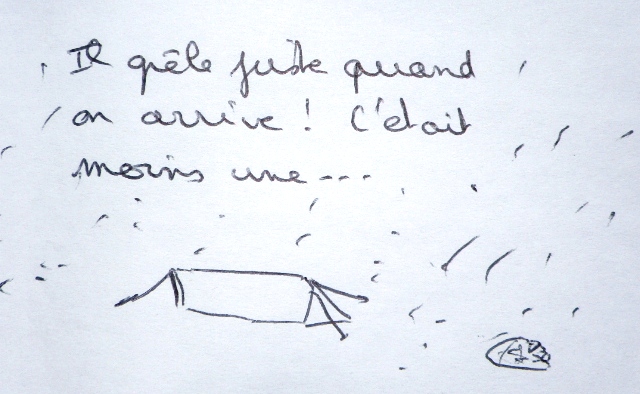 Il grêle juste quand
on arrive ! C'était
moins une ---